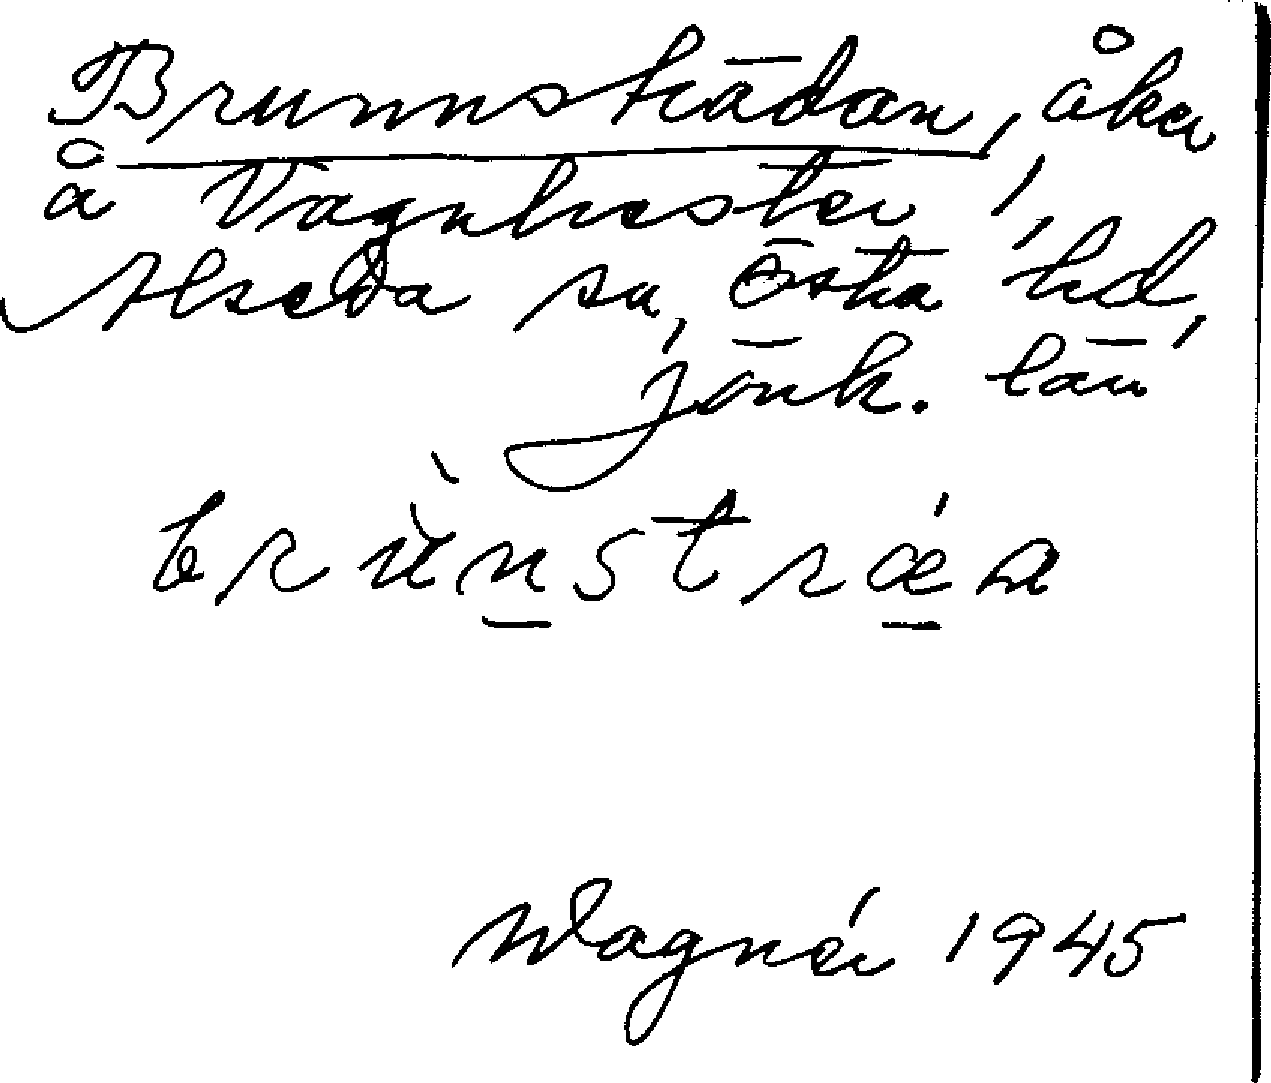 Brunnsträdan, åker
å Vagnhester,
Alseda sn, Östra hd,
Jönk. län
brùn̲strǽ̲a
Wagnér 1945